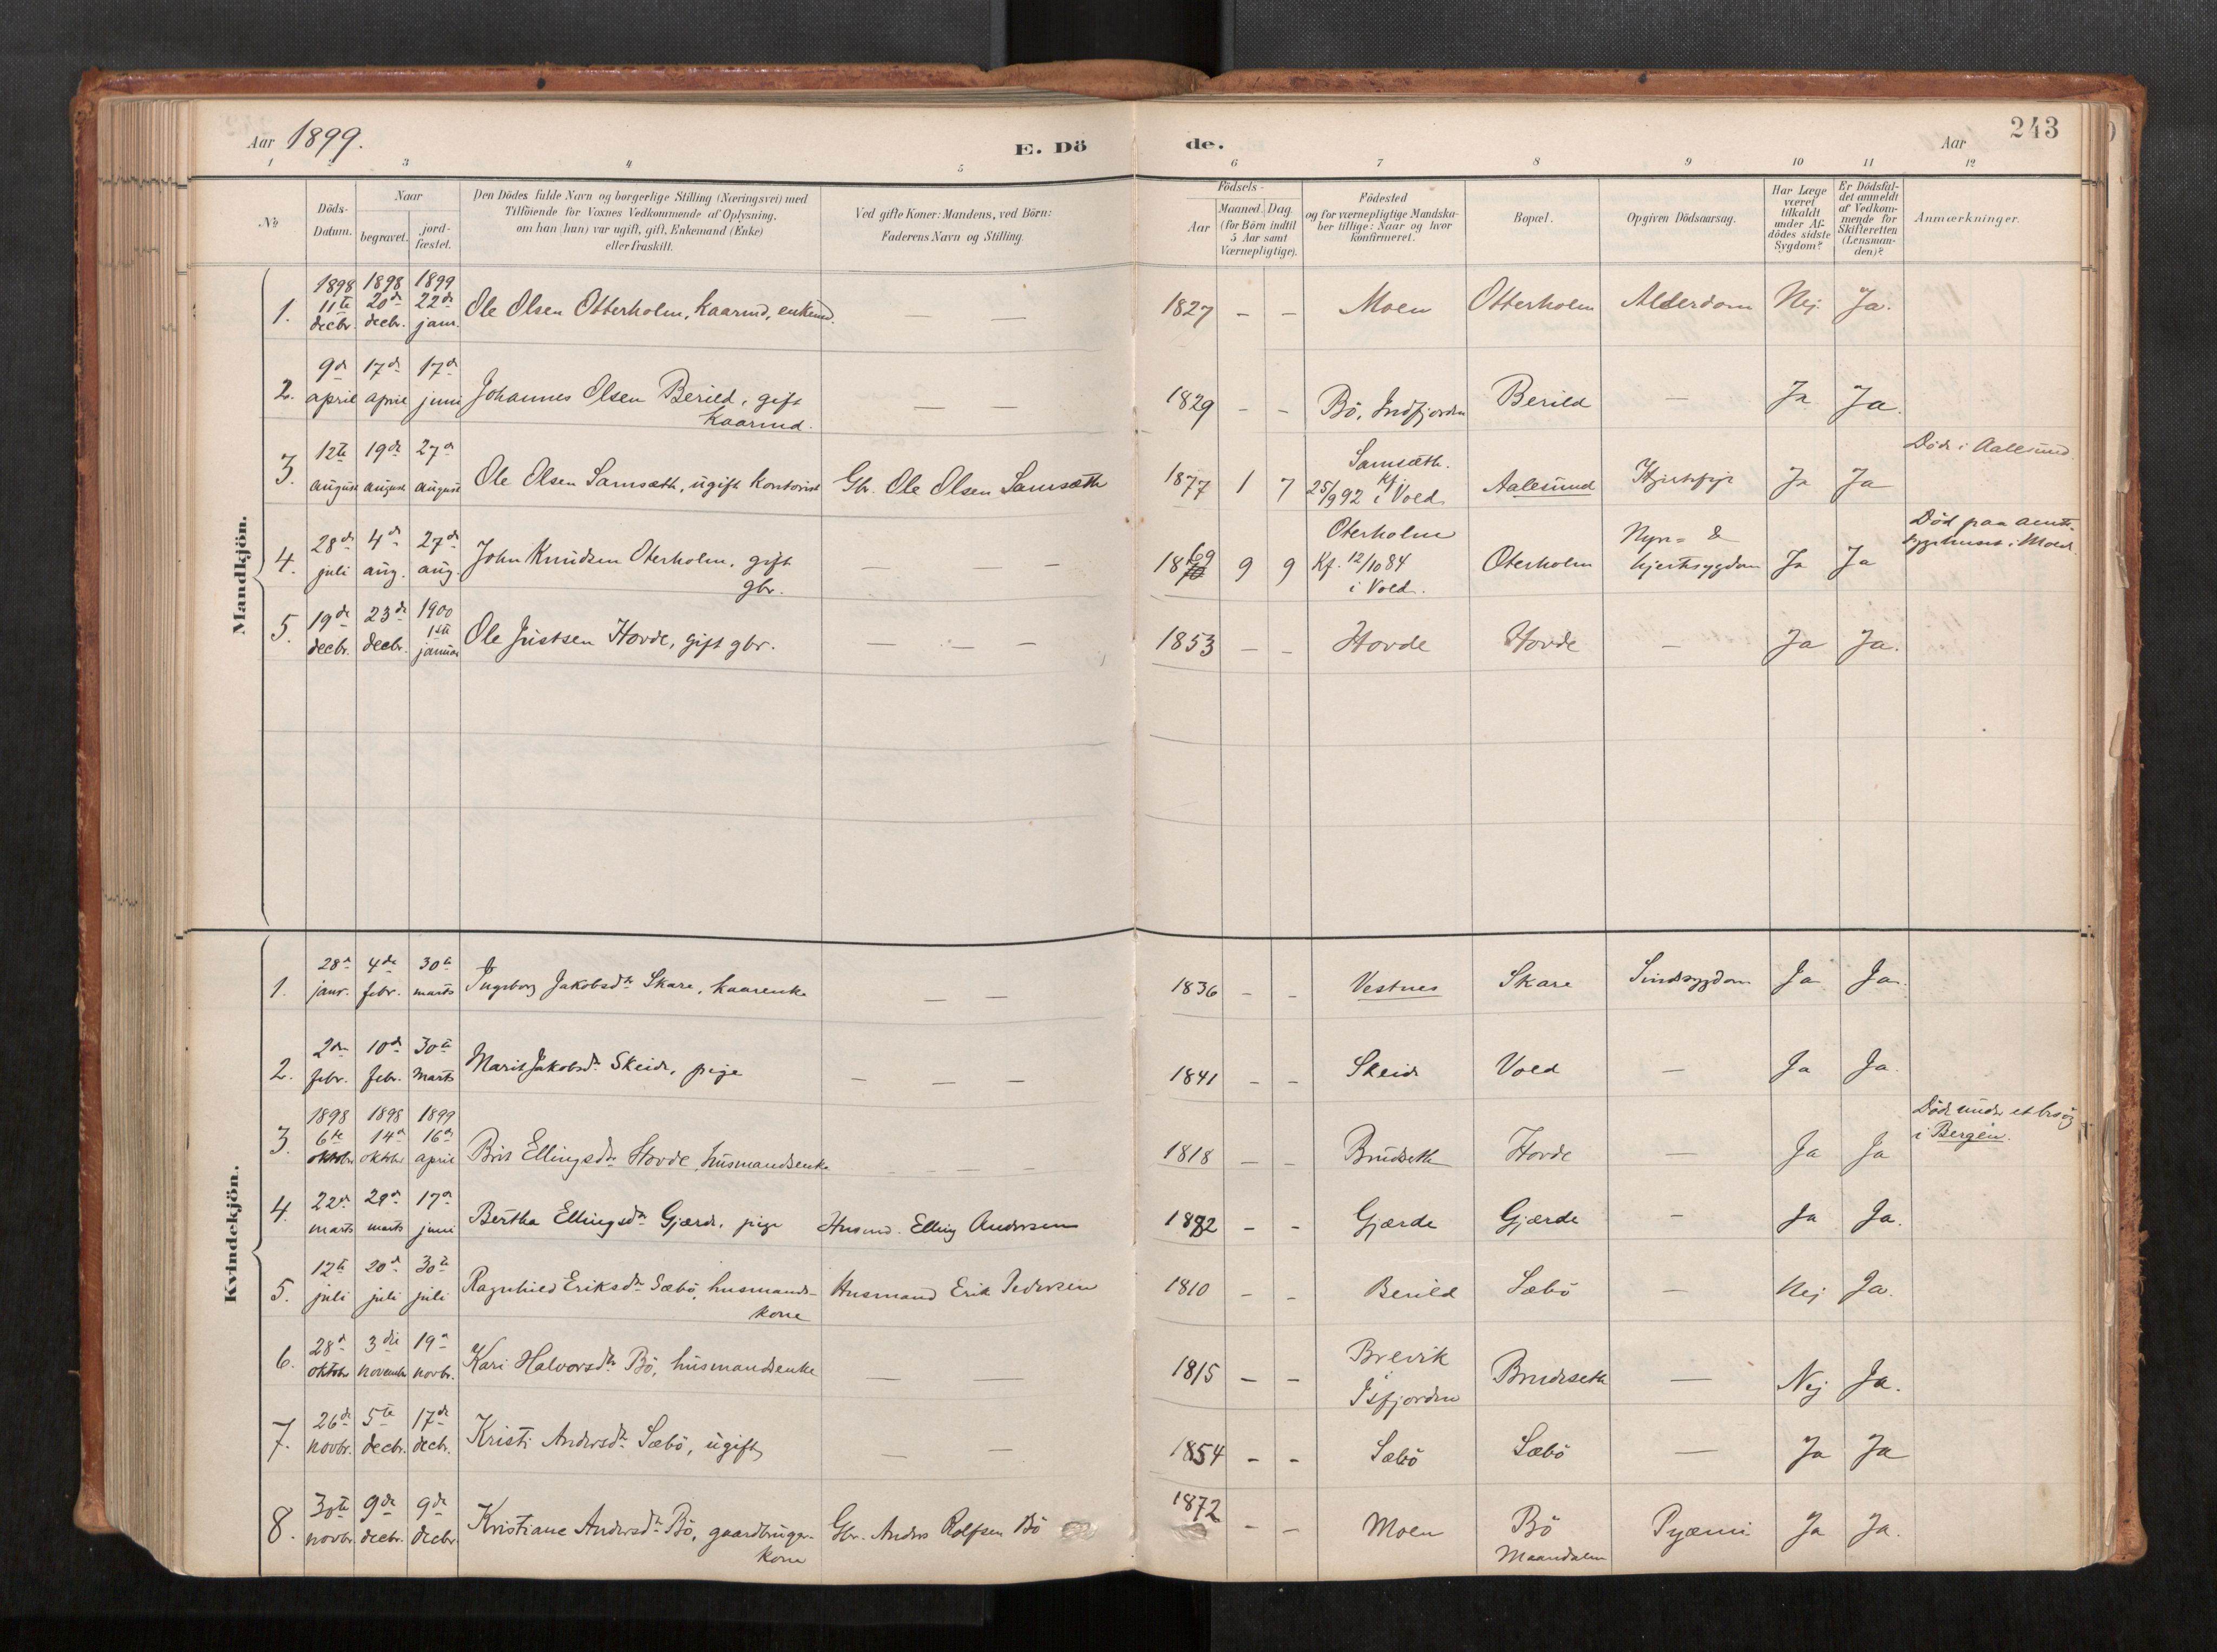 Aar 1899.
E. Döde.
Aar
243
1 2 3 4 5 6 7 8 9 10 11 12
No
Döds-Datum.
Naar
begravet.
jord-fæstet.
Den Dödes fulde Navn og borgerlige Stilling (Næringsvei) med
Tilföiende for Voxnes Vedkommende af Oplysning,
om han (hun) var ugift, gift, Enkemand (Enke)
eller fraskilt.
Ved gifte Koner: Mandens, ved Börn:
Faderens Navn og Stilling.
Födsels-
Aar
Maaned. Dag.
(for Börn indtil
5 Aar samt
Værnepligtige).
Födested
og for værnepligtige Mandska-
ber tillige: Naar og hvor
konfirmeret.
Bopæl.
Opgiven Dödsaarsag.
Har Læge
været
tilkaldt
under Af-
dödes sidste
Sygdom?
Er Dödsfal-
det anmeldt
af Vedkom-
mende for
Skifteretten
(Lensman-
den)?
Anmærkninger.
Mandkjön.
1. 1898 11te decbr. 1898 20de decbr. 1899 22de janr. Ole Olsen Otterholm, kaarmd, enkemd. — — 1827 – – Moen Otterholm Alderdom Nej Ja.
2. 9de april 17de april 17de juni Johannes Olsen Berild, gift
kaarmd. — — 1829 – – Bö, Indfjorden Berild — Ja Ja.
3. 12te august 19de august 27de august Ole Olsen Samsæth, ugift kontorist Gbr. Ole Olsen Samsæth 1877 1 7 Samsæth.
Kf. 25/9 92 i Vold Aalesund Ja Ja Död i Aalesund.
4. 28de juli 4de aug. 27de aug. John Knudsen Oterholm, gift
gbr. — — — 1869 9 9 Oterholm
Kf. 12/10 84
i Vold. Oterholm Nyre- &
hjertesygdom Ja Ja Död paa amts-
sygehuset i Molde.
5. 19de decbr. 23de decbr. 1900 1ste januar Ole Justsen Hovde, gift gbr. — — — 1853 – – Hovde Hovde — Ja Ja.
Kvindekjön.
1. 28de janr. 4de febr. 30te marts Ingeborg Jakobsdtr Skare, kaarenke — — 1836 – – Vestnes Skare Sindssygdom Ja Ja.
2. 2den febr. 10de febr. 30te marts Marit Jakobsdtr Skeide, pige — — — 1841 – – Skeide Vold — Ja Ja.
3. 1898 6te oktobr 1898 14de oktobr 1899 16de april Brit Ellingsdtr Hovde, husmandsenke — — — 1818 – – Brudseth Hovde — Ja Ja Död under et besög
i Bergen.
4. 22de marts 29de marts 17de juni Bertha Ellingsdtr Gjærde, pige Husmd. Elling Andersen 1882 – – Gjærde Gjærde – Ja Ja.
5. 12te juli 20de juli 30te juli Ragnhild Eriksdtr Sæbö, husmands-
kone Husmand Erik Pedersen 1810 – – Berild Sæbö — Nej Ja.
6. 28de oktobr 3die novembr 19de novbr. Kari Halvorsdtr Bö, husmandsenke — — 1815 – – Brevik
i
Isfjorden Brudeseth — Nej Ja.
7. 26de novbr. 5te decbr. 17de decbr. Kristi Andersdtr Sæbö, ugift — — 1854 – – Sæbö Sæbö — Ja Ja
8. 30te novbr. 9de decbr. 9de decbr. Kristiane Andersdtr Bö, gaardbruger-
kone Gbr. Anders Rolfsen Bö 1872 – – Moen Bö
Maandalen Pyæmi Ja Ja.